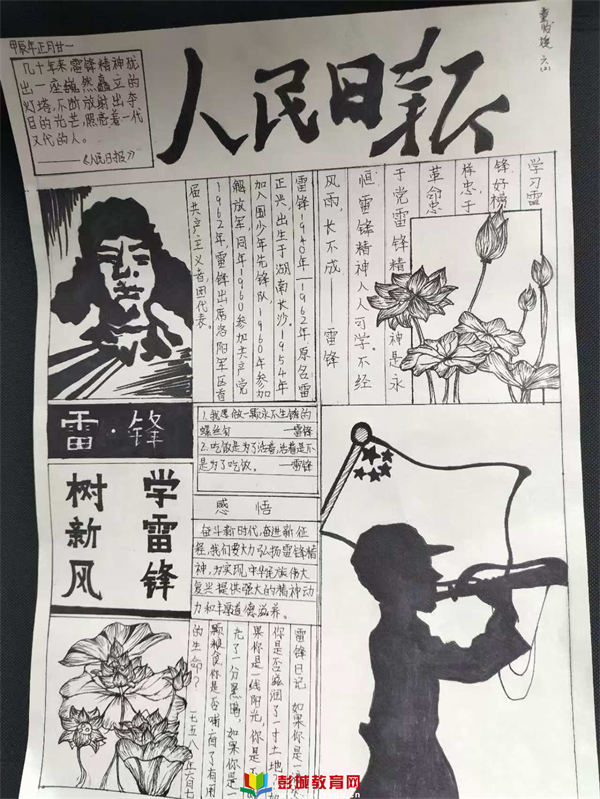 六(2)
甲辰年正月廿一
几十年来雷锋精神犹
出一座巍然矗立的
灯塔,不断放射出夺
目的光芒,照亮着一代
又代的人。
——《人民日报》
人民日报
学习雷
锋好榜
样忠于
革命忠
于党雷锋精神是永
恒雷锋精神人人可学不经
风雨,长不成——雷锋
雷锋1940年—1962年原名雷
正兴,出生于湖南长沙。1954年
加入国少年先锋队,1960年参加
解放军,同年1960参加共产党
1962年,雷锋出席洛阳军区首
届共产主义青团代表。
雷·锋
学雷锋
树新风
1.我愿做一颗永不生锈的
螺丝钉 —雷锋
2.吃饭是为了活着,活着是不
是为了吃饭。 —雷锋
感悟
奋斗新时代,奋进新征
程,我们要大力弘扬雷锋精
神,为实现中华民族伟大
复兴提供强大的精神动
力和丰厚道德滋养。
雷锋日记 如果你是一
你是否滋润了一寸土地?如
果你是一线阳光,你是否
亮了一分黑暗,如果你是一
颗粮食你是否哺育了有用
的生命?
彭城教育网